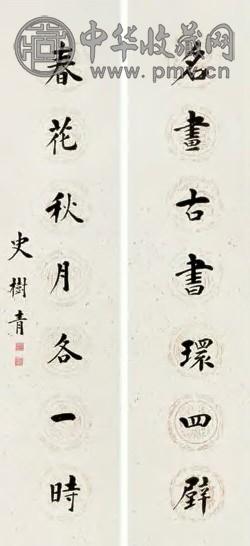 中华收藏网
www.pmcn.cn
名畫古書環四壁
春花秋月各一時
史樹青